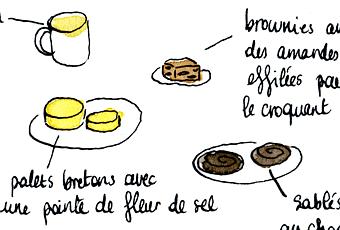 brownies au
des amandes
effilées pou
le croquant
palets bretons avec
une pointe de fleur de sel
sablés
au cho